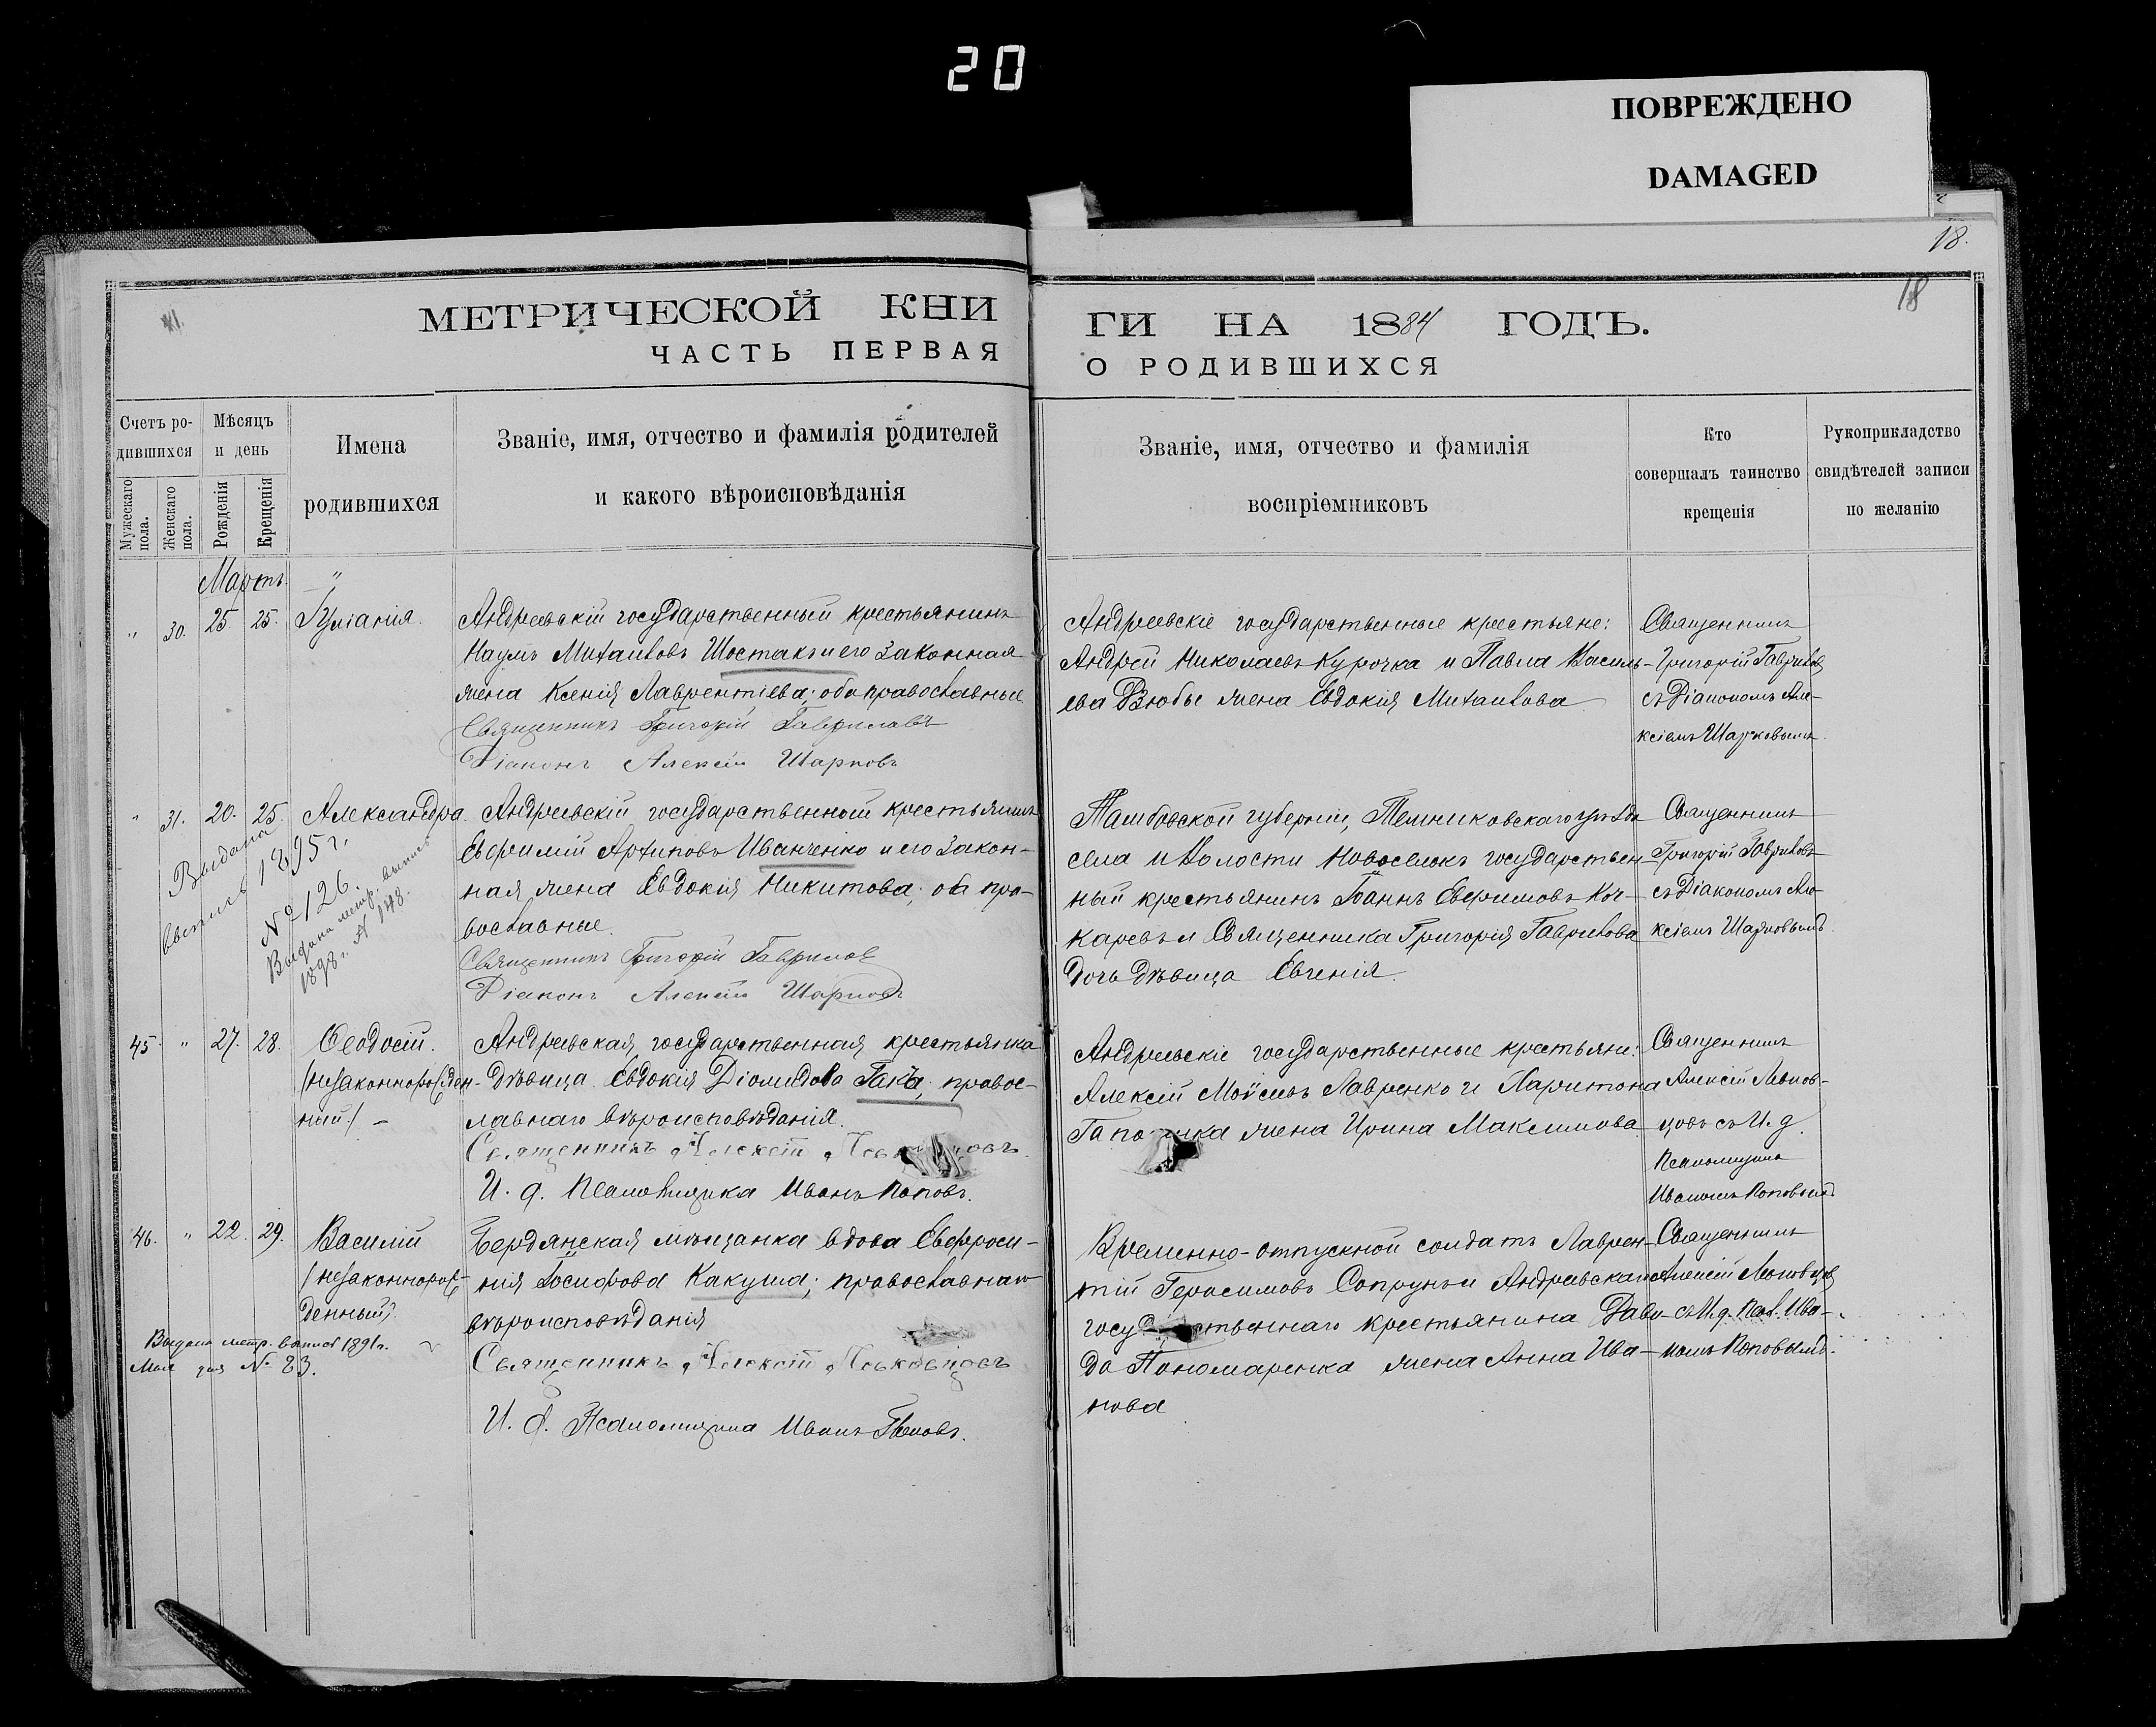 20
ПОВРЕЖДЕНО
DAMAGED
18.
18
МЕТРИЧЕСКОЙ КНИ
ЧАСТЬ ПЕРВАЯ
ГИ НА 1884 ГОДЪ.
О РОДИВШИХСЯ
Счетъ ро-
дившихся
Мужескаго пола.
Женскаго пола.
Мѣсяцъ
и день
Рожденія
Крещенія
Имена
родившихся
Званіе, имя, отчество и фамилія родителей
и какого вѣроисповѣданія
Званіе, имя, отчество и фамилія
воспріемниковъ
Кто
совершалъ таинство
крещенія
Рукоприкладство
свидѣтелей записи
по желанію
Мартъ
" 30. 25. 25. Іуліанія.
Андреевскій государственный крестьянинъ
Наумъ Михаиловъ Шостакъ и его законная
жена Ксенія Лаврентіева; оба православные
Священникъ Григорій Гавриловъ
Діаконъ Алексій Шарковъ
Андреевскіе государственные крестьяне:
Андрей Николаевъ Курочка и Павла Василь-
ева Дзюбы жена Евдокія Михаилова
Священникъ
Григорій Гавриловъ
съ Діакономъ Але-
ксіемъ Шарковымъ.
" 31. 20. 25. Александра.
Выдана
выпись 1895 г.
№ 126
Выдана метр. выпись
1898 г. № 148.
Андреевскій государственный крестьянинъ
Евфимій Архиповъ Иванченко и его закон-
ная жена Евдокія Никитова; оба пра-
вославные.
Священникъ Григорій Гавриловъ
Діаконъ Алексій Шарковъ
Тамбовской губерніи, Темниковскаго уѣзда
села и волости Новоселокъ государствен-
ный крестьянинъ Іоаннъ Евфимовъ Коч-
каревъ и Священника Григорія Гаврилова
дочь дѣвица Евгенія.
Священникъ
Григорій Гавриловъ
съ Діакономъ Але-
ксіемъ Шарковымъ.
45. " 27. 28. Ѳеодосій.
(незаконнорожден-
ный) –
Андреевская государственная крестьянка
дѣвица Евдокія Діомидова Гака; правос-
лавнаго вѣроисповѣданія.
Священникъ Алексій
И. д. Псаломщика Иванъ Поповъ.
Андреевскіе государственные крестьяне:
Алексій Моѵсеевъ Лавренко и Харитона
жена Ирина Максимова.
Священникъ
Алексій
съ И. д.
Псаломщика
Иваномъ Поповымъ
46. " 22. 29. Василій
(незаконнорож-
денный).
Выдана метр. выпись 1891 г.
Мая дня № 83.
Бердянская мѣщанка вдова Евфроси-
нія Іосифова Какуша; православнаго
вѣроисповѣданія
Священникъ Алексій
И. д. Псаломщика Иванъ Поповъ.
Временно-отпускной солдатъ Лаврен-
тій Герасимовъ Сопрунъ и Андреевскаго
крестьянина Дави-
да Пономаренка жена Анна Ива-
нова
Священникъ
Алексій
съ И. д. Псал. Ива-
номъ Поповымъ.